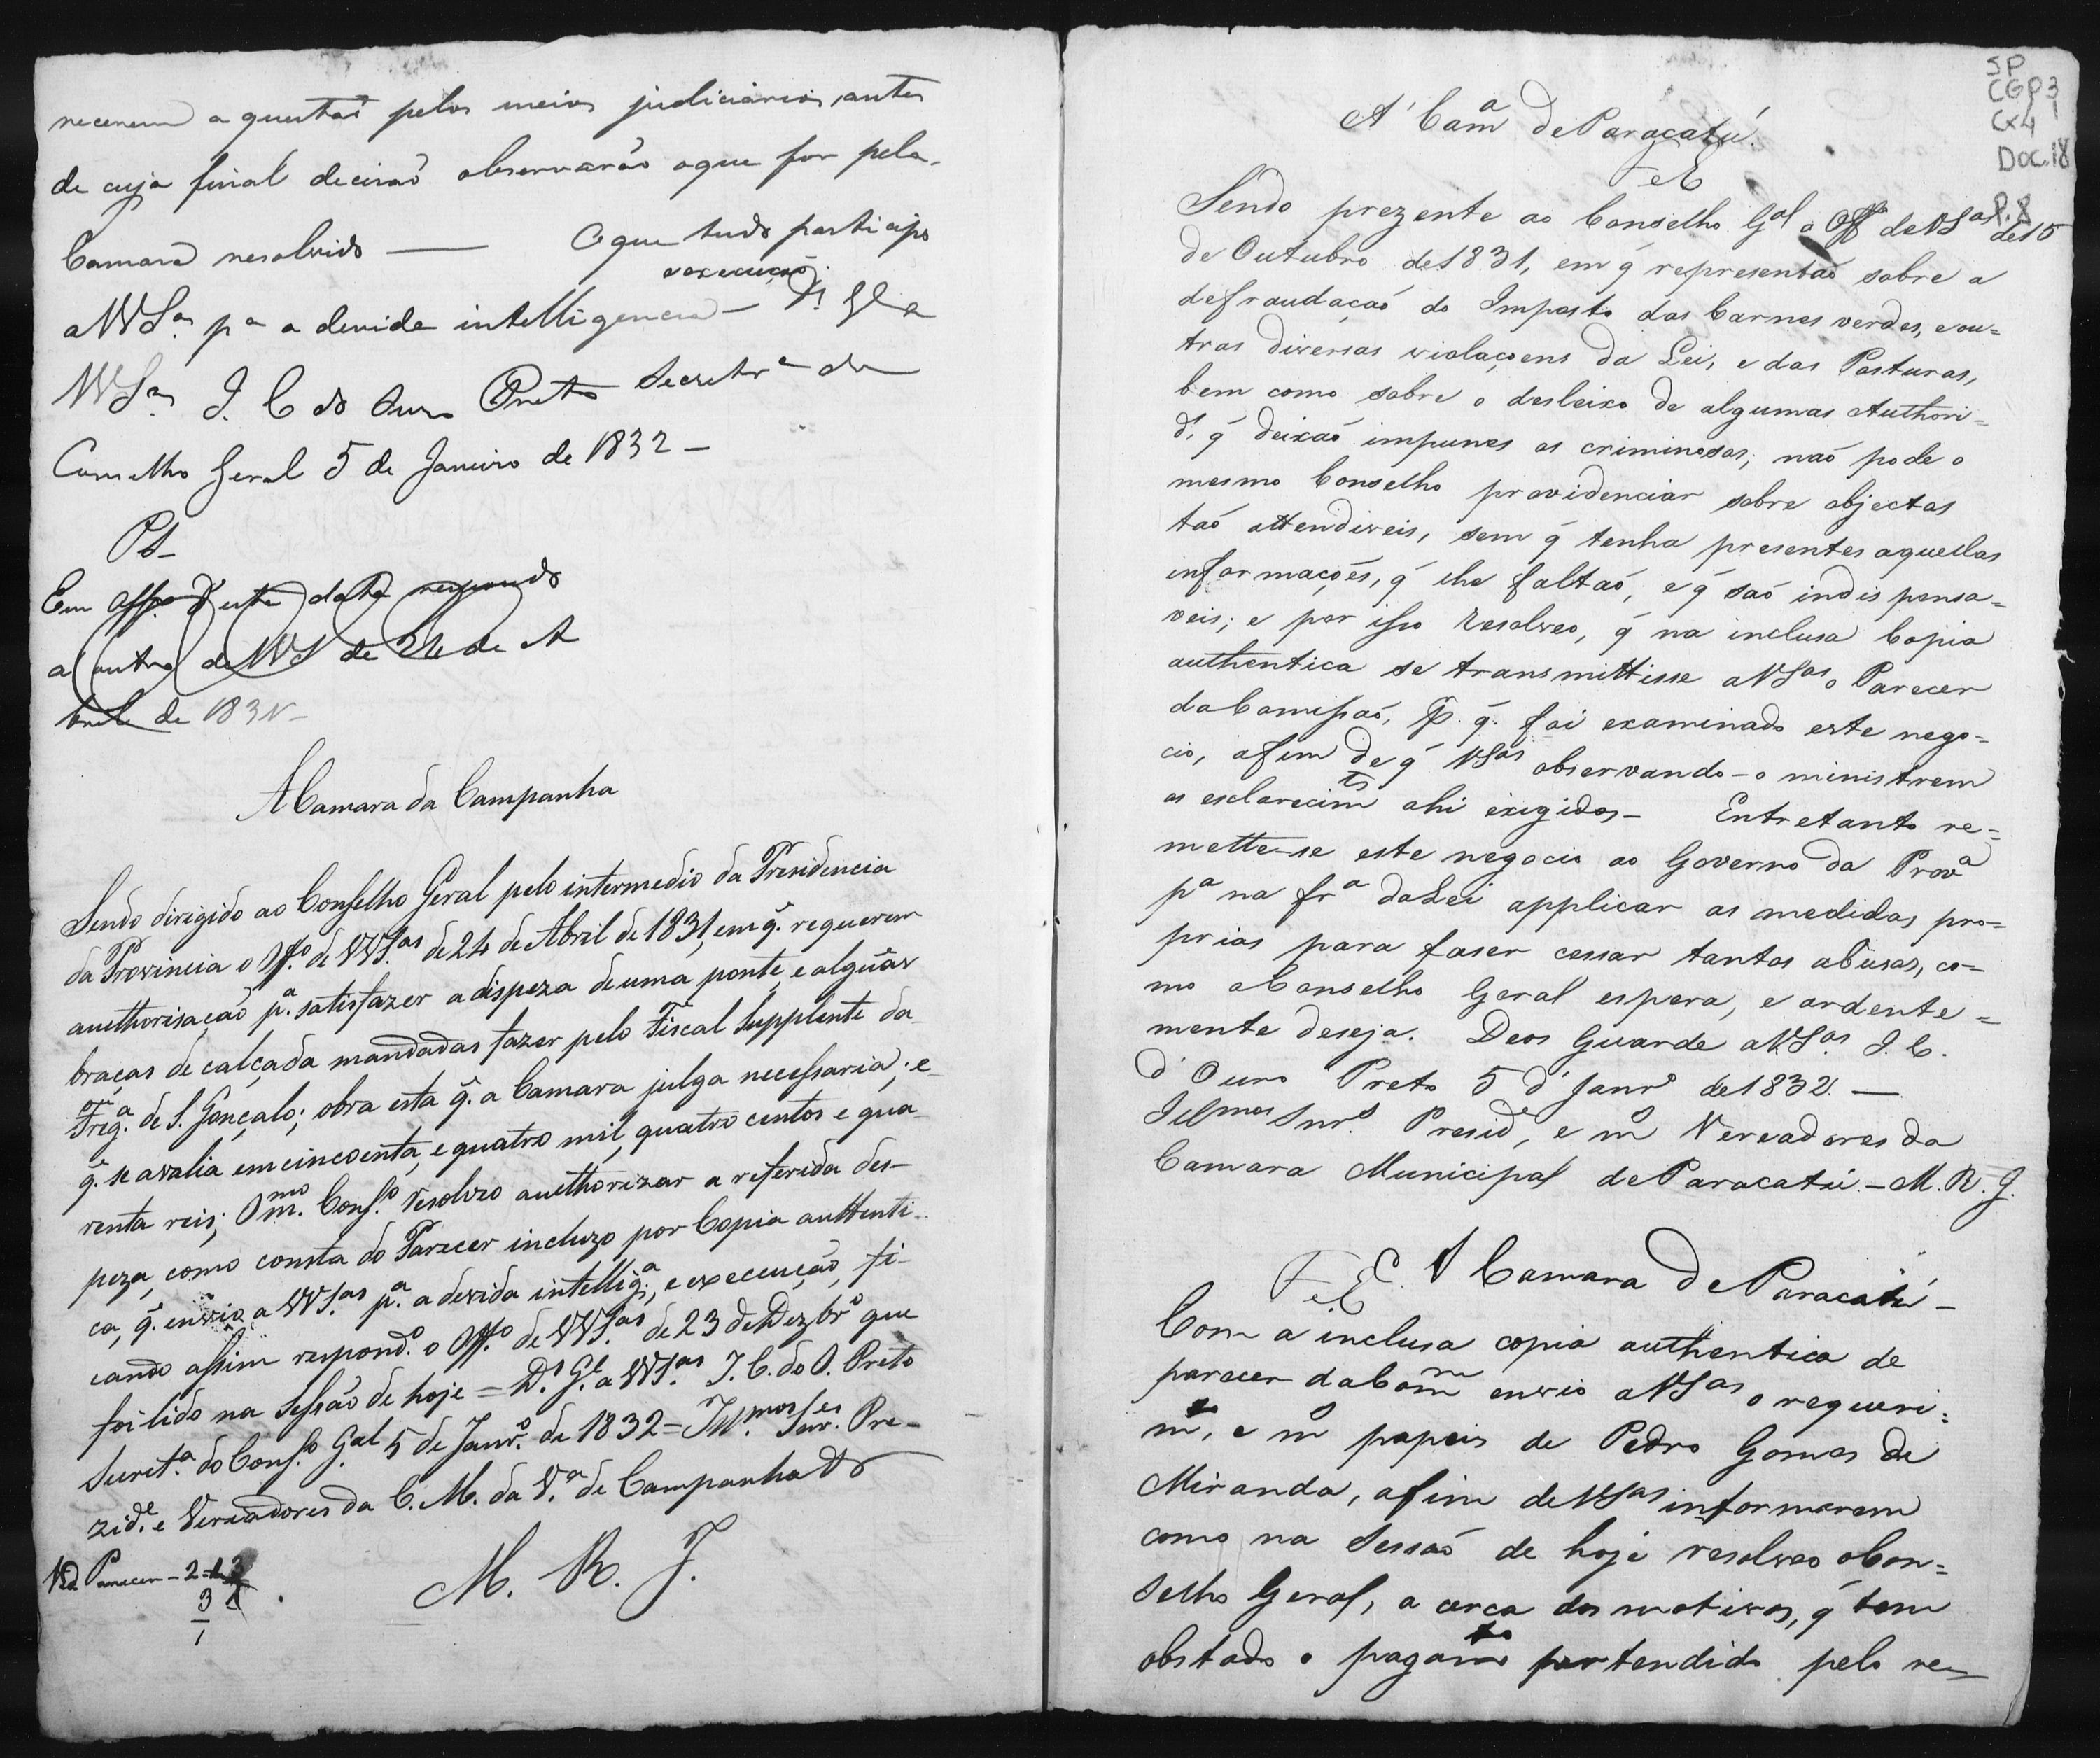 recerem a questaõ pelos meios judiciarios, antes
de cuja final decisaõ observarão o que for pela
Camara resolvido — O que tudo participo
a VVSas. pa a devida intelligencia e execuçaõ. — Ds. Ge a
VVSas I. C do Ouro Preto Secretra do
Conselho Geral 5 de Janeiro de 1832 —
PS —
Em Offo desta data respondo
a outro de VVS de 24 de A
bril de 1831 —
A Camara da Campanha
Sendo dirigido ao Conselho Geral pelo intermedio da Presidencia
da Provincia o Offo. de VVSas. de 24 de Abril de 1831, em q̃. requerem
authorisação pa. satisfazer a dispeza de uma ponte, e algũas
braças de calçada mandadas fazer pelo Fiscal Supplente da
Freg.a de S. Gonçalo; obra esta q̃. a Camara julga necessaria; e
q̃. se avalia em cincoenta, e quatro mil, quatro centos e qua-
renta reis; O mmo. Conso. resolveo authorizar a referida des-
peza, como consta do Parecer incluzo por Copia authenti-
ca, q̃. envio a VVSas. pa. a devida intelliga., e execcução, fi-
cando assim respondo. o Offo. de VVSas. de 23 de Dezbro que
foi lido na Sessão de hoje = Ds. Ge. a VVSas. I. C. do O. Preto
Secreta. do Conso. Gal 5 de Janro. de 1832 = Illmos. Snres. Pre-
zide. e Vereadores da C. M. da Va. de Campanha
M. R. J.
Vid. Parecer — 2
3
1
SP
CGP3
CX4
DOC. 18
P. 8
A' Cama de Paracatú.
F e E
Sendo prezente ao Conselho Gal o Offo de VSas de 15
de Outubro de 1831, em q̃ representaõ sobre a
defraudaçaõ do Imposto das Carnes verdes, e ou=
tras diversas violaçoens da Lei, e das Posturas,
bem como sobre o desleixo de algumas Authori=
d.es, q̃ deixaõ impunes os criminosos; naõ pode o
mesmo Conselho providenciar sobre objectos
taõ attendiveis, sem q̃ tenha presentes aquellas
informações, q̃ lhe faltaõ, e q̃ saõ indispensa=
veis; e por isso resolveo, q̃ na inclusa Copia
authentica se transmittisse a VSas o Parecer
da Comissaõ, p. q̃. foi examinado este nego=
cio, afim de q̃ VSas observando-o ministrem
os esclarecimtos ahi exigidos — Entretanto re=
mette-se este negocio ao Governo da Prova
pa na fra da Lei applicar as medidas pro=
prias para faser cessar tantos abusos, co=
mo o Conselho Geral espera, e ardente=
mente deseja. Deos Guarde a VSas. I. C.
d' Ouro Preto 5 d' Janro de 1832. —
Illmos Snrs. Preside, e m Vereadores da
Camara Municipal de Paracatú. — M. R. J.
F. e E. A Camara de Paracatú —
Com a inclusa copia authentica de
parecer da Com envio a VSas o requeri=
mto, e m papeis de Pedro Gomes de
Miranda, afim de VSas informarem
como na Sessaõ de hoje resolveo o Con=
selho Geral, a cerca dos motivos, q̃ tem
obstado o pagamto pertendido pelo re